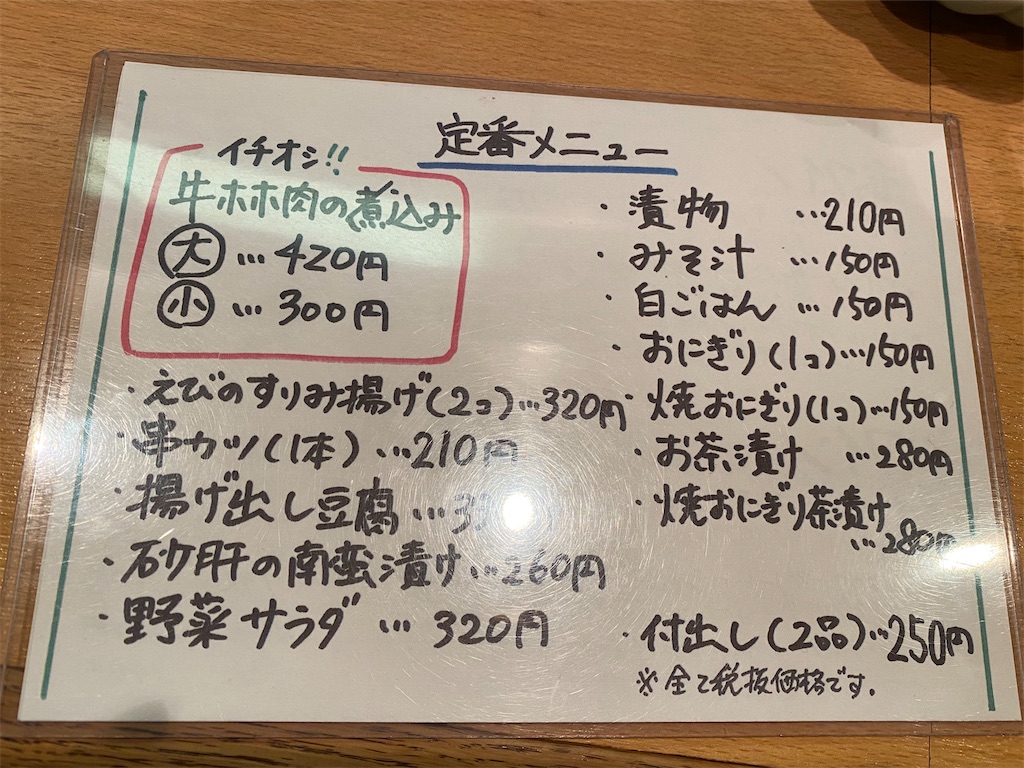 定番メニュー
イチオシ!!
牛ホホ肉の煮込み
大 … 420円
小 … 300円
・えびのすりみ揚げ(2コ)…320円
・串カツ(1本) …210円
・揚げ出し豆腐 …
・砂肝の南蛮漬け …260円
・野菜サラダ … 320円
・漬物 …210円
・みそ汁 …150円
・白ごはん …150円
・おにぎり(1コ)…150円
・焼おにぎり(1コ)…150円
・お茶漬け …280円
・焼おにぎり茶漬け
…280円
・付出し(2品)…250円
※全て税抜価格です.